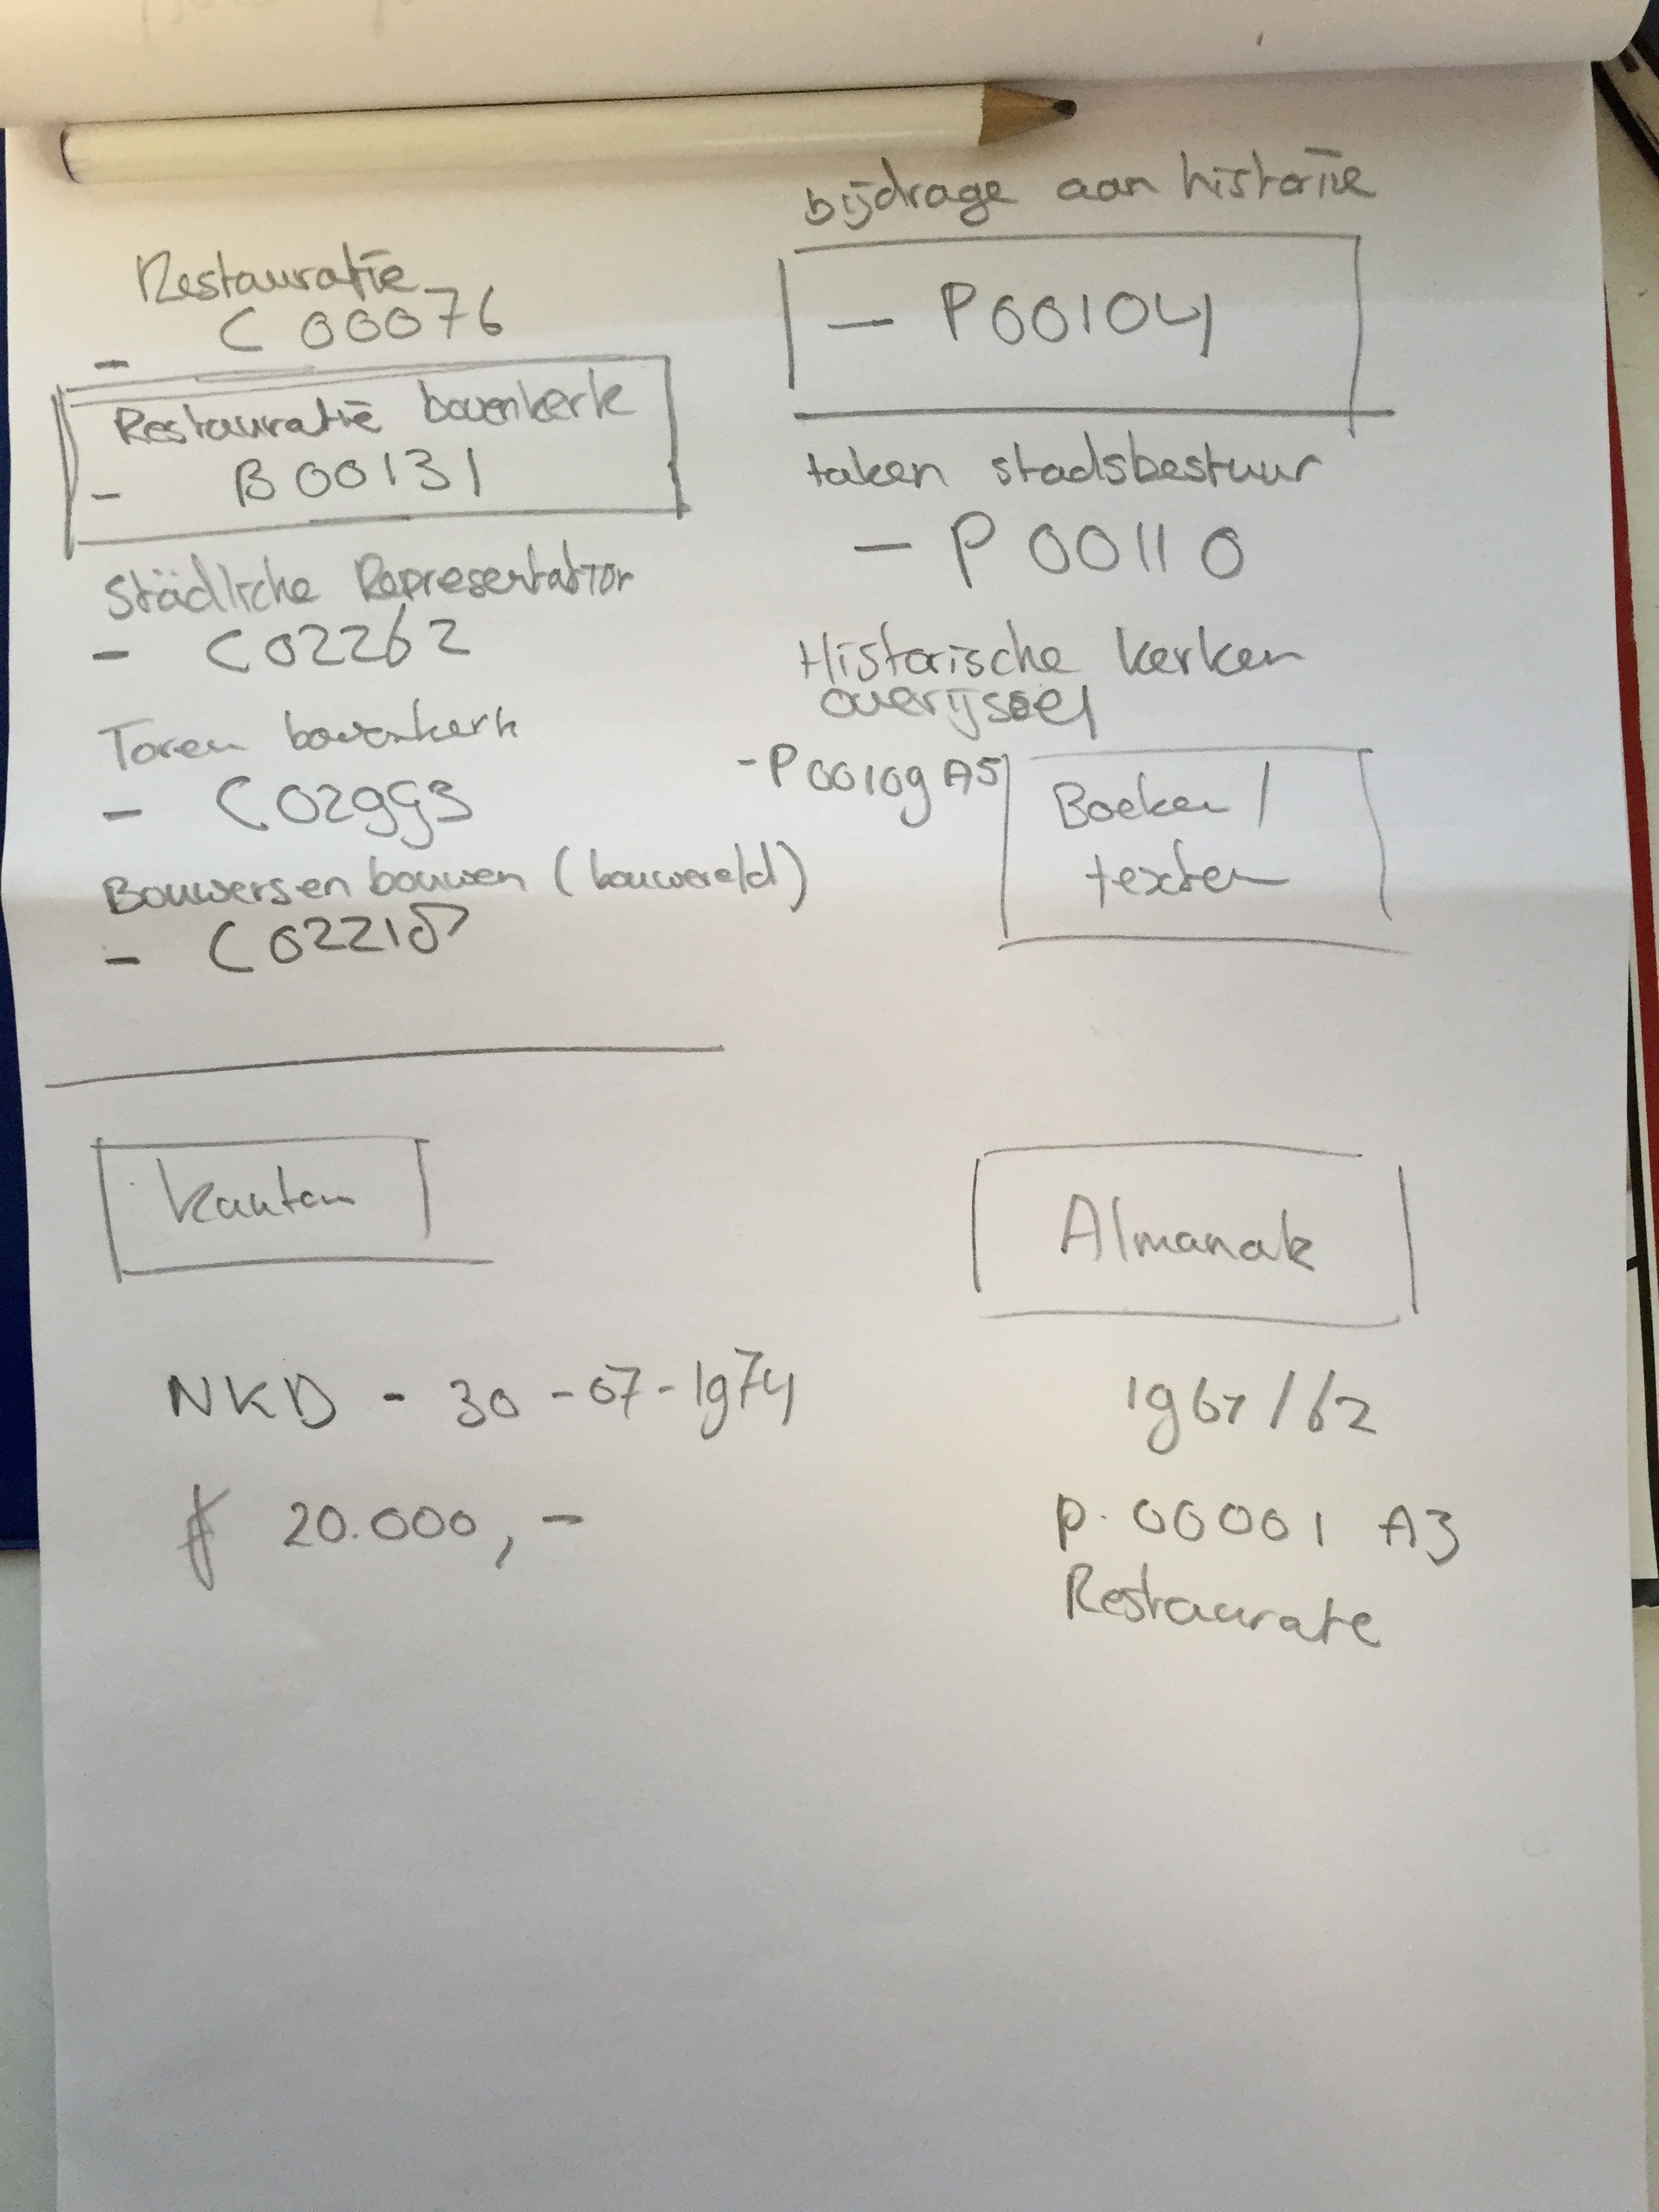 Restauratie
- C 00076
Restauratie bovenkerk
- B 00131
Städliche Representation
- C02262
Toren bovenkerk
- C02993
Bouwersen bouwen (bouwereld)
- C02218
bijdrage aan historie
- P00104
taken stadsbestuur
- P 00110
Historische kerken
overijssel
- P00109 A5
Boeken /
texten
Kanton
NKD - 30-07-1974
ƒ 20.000,-
Almanak
1961/62
p. 00001 A3
Restaurate